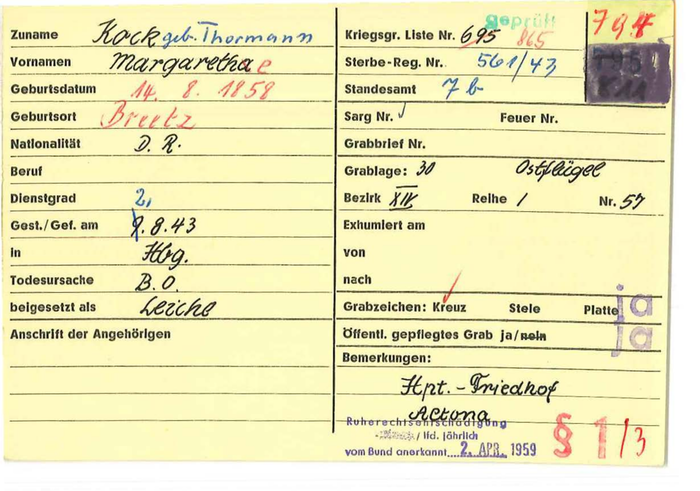 geprüft
794
Zuname Kock geb. Thormann
Vornamen Margarethae
Geburtsdatum 14. 8. 1858
Geburtsort Breetz
Nationalität D. R.
Beruf
Dienstgrad 2,
Gest./Gef. am 9.8.43
in Hbg.
Todesursache B.O.
beigesetzt als Leiche
Anschrift der Angehörigen
Kriegsgr. Liste Nr. 695 865
Sterbe-Reg. Nr. 561/43
Standesamt 7b
Sarg Nr. Feuer Nr.
Grabbrief Nr.
Grablage: 30 Ostflügel
Bezirk XIV Reihe 1 Nr. 57
Exhumiert am
von
nach
Grabzeichen: Kreuz Stele Platte ja
Öffentl. gepflegtes Grab ja/nein ja
Bemerkungen:
Hpt.-Friedhof
Altona
Ruherechtsentschädigung
/ lfd. jährlich
vom Bund anerkannt 2. APR. 1959
§ 1/3